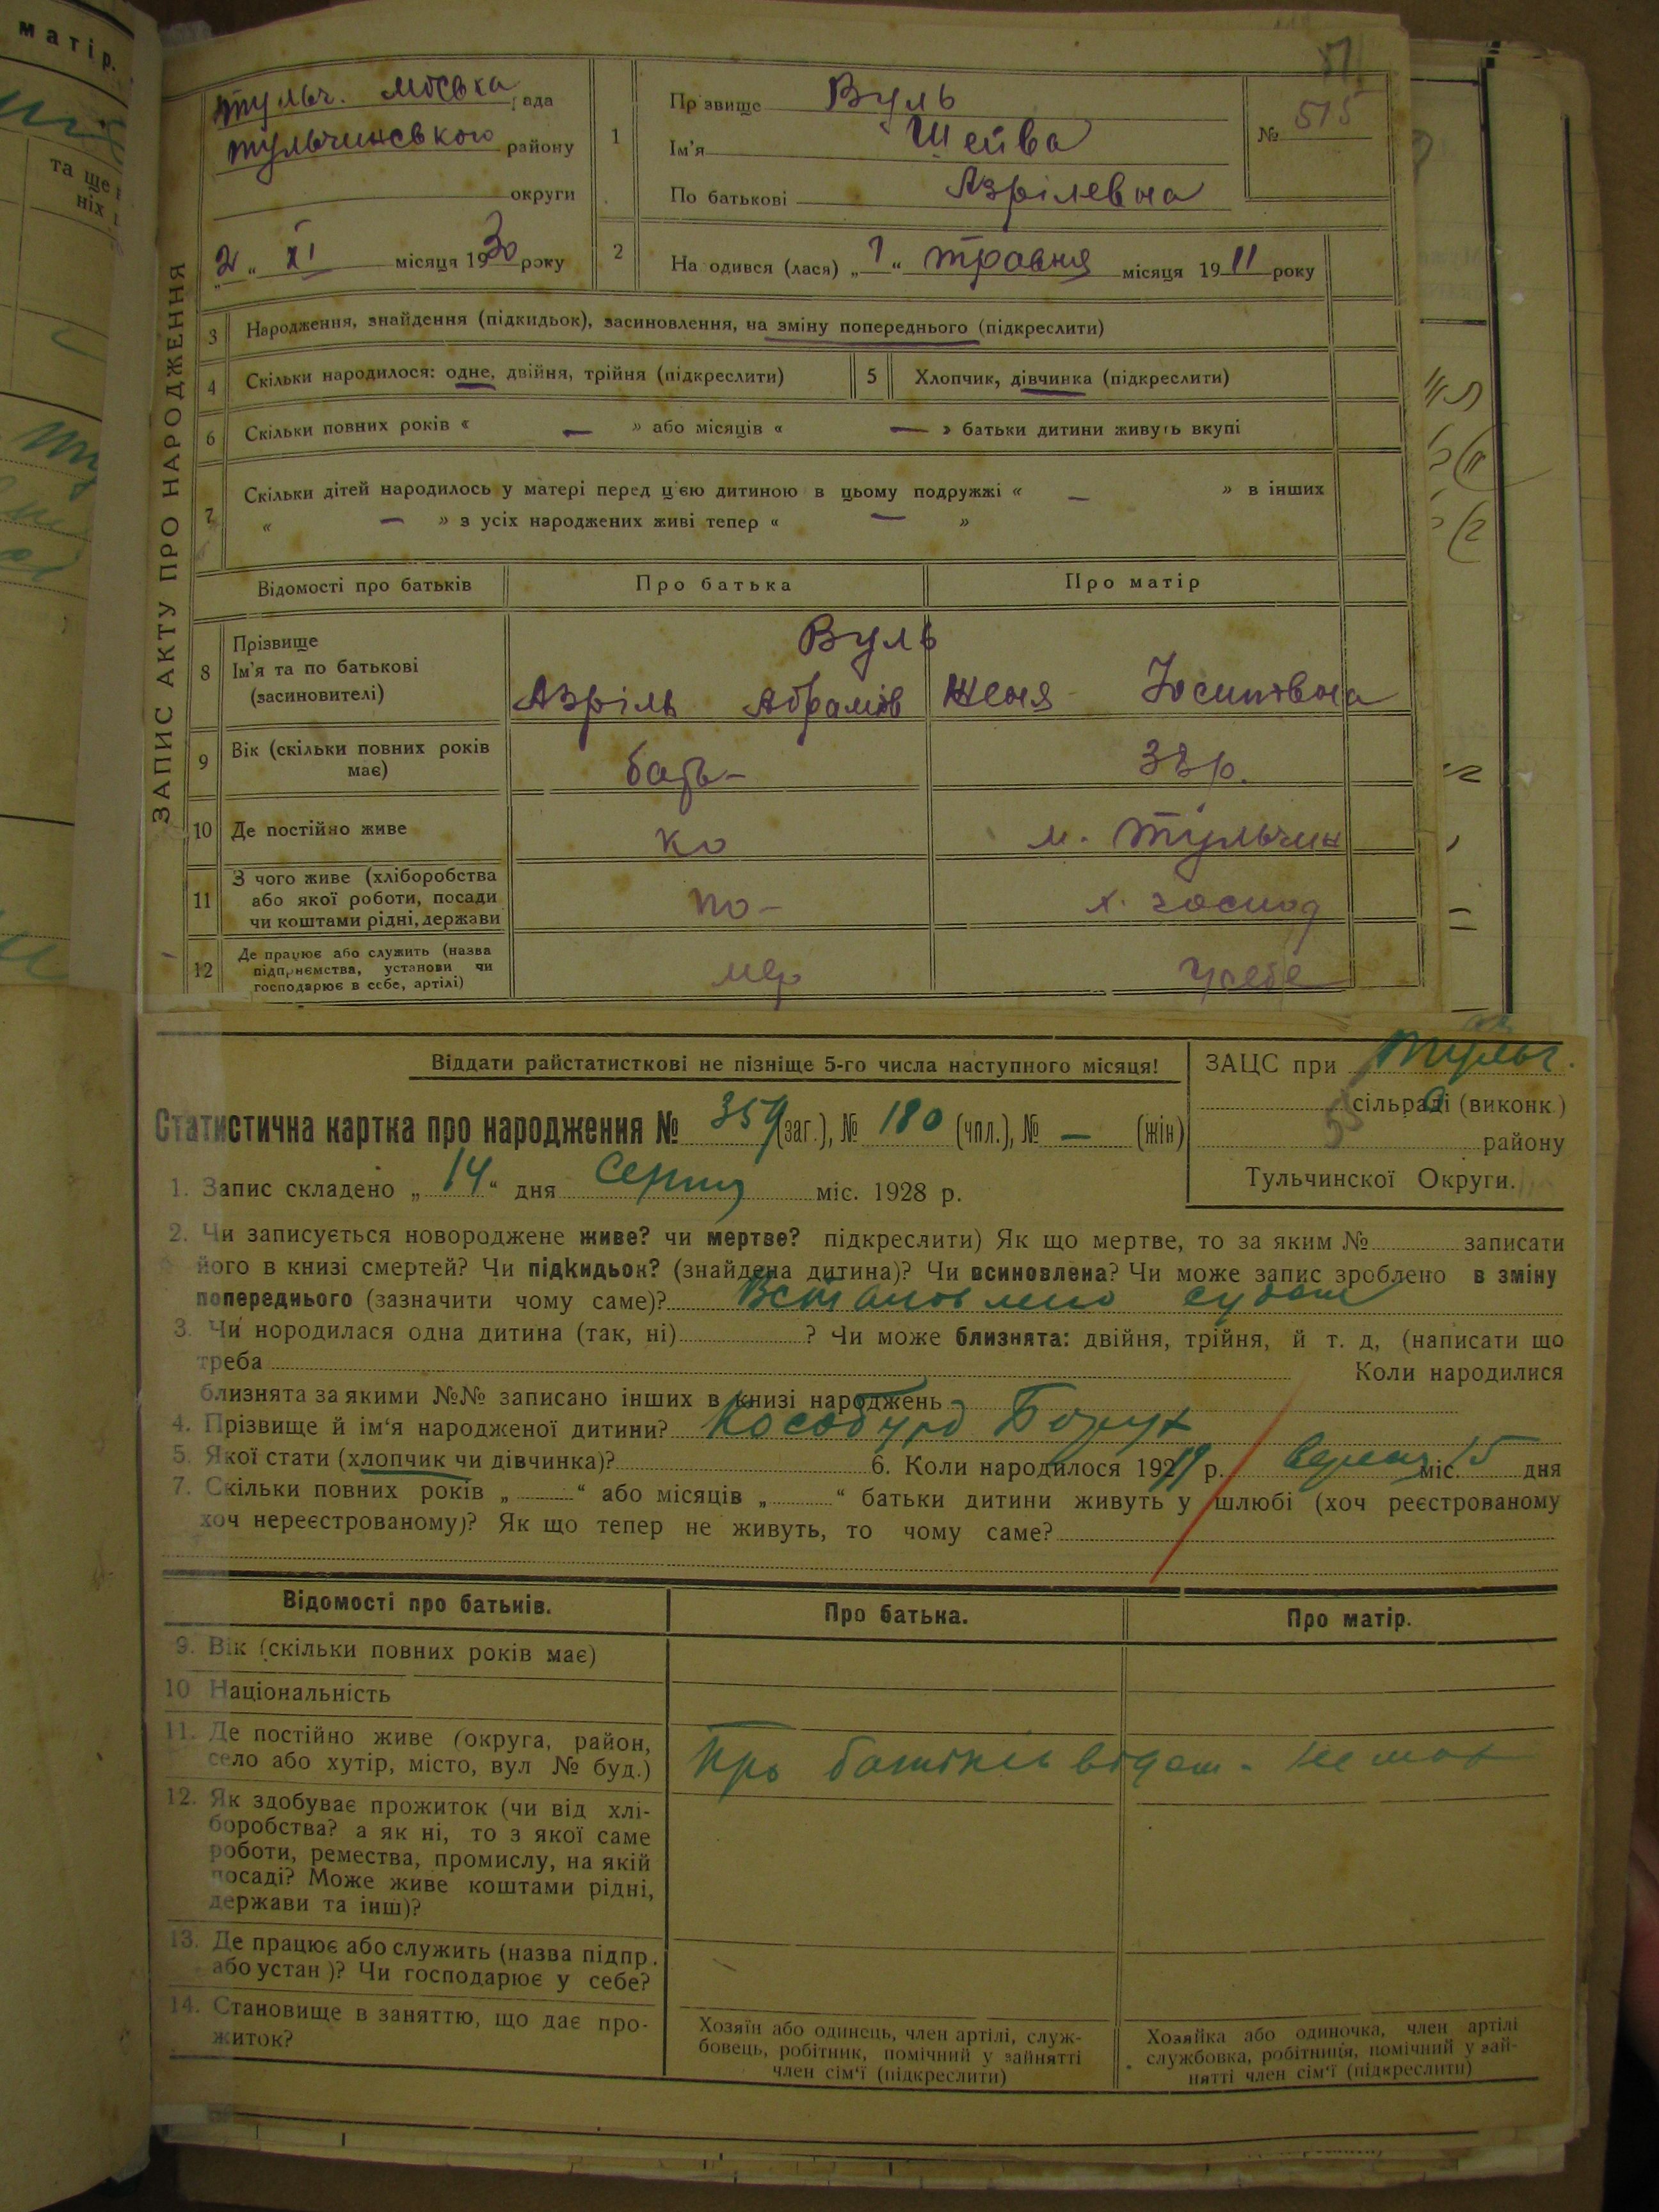 матір.
та ще
ніх
ЗАПИС АКТУ ПРО НАРОДЖЕННЯ
тульч. міська рада
тульчинського району
округи
2 „ XI місяця 1930 року
1 Прізвище Вуль
Ім'я Шейва
По батькові Азрілевна
№ 515
2 На одився (лася) „1“ травня місяця 1911 року
3 Народження, знайдення (підкидьок), засиновлення, на зміну попереднього (підкреслити)
4 Скільки народилося: одне, двійня, трійня (підкреслити) 5 Хлопчик, дівчинка (підкреслити)
6 Скільки повних років « — » або місяців « — » батьки дитини живуть вкупі
7 Скільки дітей народилось у матері перед цією дитиною в цьому подружжі « — » в інших
« — » з усіх народжених живі тепер « — »
Відомості про батьків Про батька Про матір
8 Прізвище Вуль
Ім'я та по батькові
(засиновителі) Азріль Абрамів Женя Йосипівна
9 Вік (скільки повних років має) бать- 38р.
10 Де постійно живе ко м. Тульчин
11 З чого живе (хліборобства
або якої роботи, посади по- х. господ
чи коштами рідні, держави
12 Де працює або служить (назва
підприємства, установи чи мер усебе
господарює в себе, артілі)
Віддати райстатисткові не пізніще 5-го числа наступного місяця!
ЗАЦС при Тульч.
сільраді (виконк.)
району
Тульчинскої Округи.
Статистична картка про народження № 359 (заг.), № 180 (чпл.), № — (жін)
1. Запис складено „14“ дня Серпня міс. 1928 р.
2. Чи записується новороджене живе? чи мертве? підкреслити) Як що мертве, то за яким № записати
його в книзі смертей? Чи підкидьок? (знайдена дитина)? Чи всиновлена? Чи може запис зроблено в зміну
попереднього (зазначити чому саме)? Встановлено судом
3. Чи нородилася одна дитина (так, ні) ? Чи може близнята: двійня, трійня, й т. д, (написати що
треба Коли народилися
близнята за якими №№ записано інших в книзі народжень
4. Прізвище й ім‘я народженої дитини? Кособурд Борух
5. Якої стати (хлопчик чи дівчинка)? 6. Коли народилося 1919 р. міс. 15 дня
7. Скільки повних років „ “ або місяців „ “ батьки дитини живуть у шлюбі (хоч реєстрованому
хоч нереєстрованому)? Як що тепер не живуть, то чому саме?
Відомості про батьків. Про батька. Про матір.
9. Вік (скільки повних років має)
10 Національність
11. Де постійно живе (округа, район,
село або хутір, місто, вул № буд.) Про батьків відом. немає
12. Як здобуває прожиток (чи від хлі-
боробства? а як ні, то з якої саме
роботи, ремества, промислу, на якій
посаді? Може живе коштами рідні,
держави та інш)?
13. Де працює або служить (назва підпр.
або устан )? Чи господарює у себе?
14. Становище в заняттю, що дає про-
житок?
Хозяїн або одинець, член артілі, служ-
бовець, робітник, помічний у зайнятті
член сім‘ї (підкреслити)
Хозяйка або одиночка, член артілі
службовка, робітниця, помічний у зай-
нятті член сім‘ї (підкреслити)